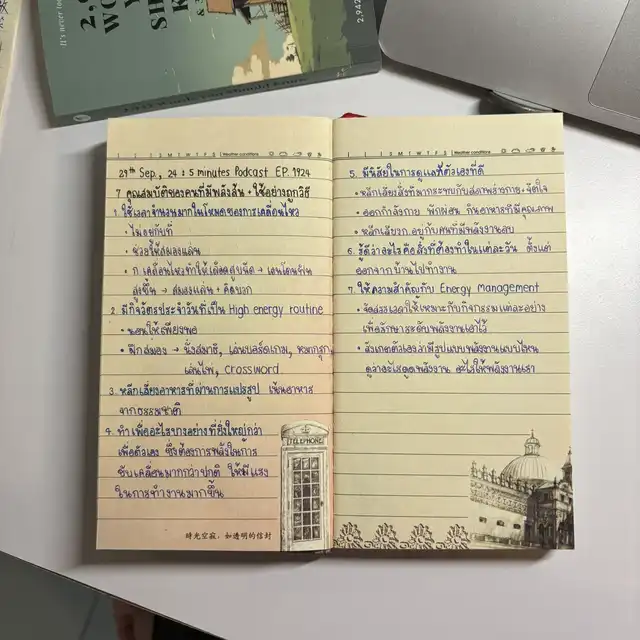 2,9
WO
Y
SH
K
&
2,942
Weather conditions
29th Sep., 24 : 5 minutes Podcast EP. 1924
7 คุณสมบัติของคนที่มีพลังล้น + ใช้อย่างถูกวิธี
1. ใช้เวลาจำนวนมากในโหมดของการเคลื่อนไหว
• ไม่อยู่กับที่
• ช่วยให้สมองแล่น
• ก. เคลื่อนไหวทำให้เลือดสูบฉีด → เอนโดรฟิน
สูงขึ้น → สมองแล่น + คิดบวก
2. มีกิจวัตรประจำวันที่เป็น High energy routine
• นอนให้เพียงพอ
• ฝึกสมอง → นั่งสมาธิ, เล่นบอร์ดเกม, หมากรุก,
เล่นไพ่, crossword
3. หลีกเลี่ยงอาหารที่ผ่านการแปรรูป เน้นอาหาร
จากธรรมชาติ
4. ทำเพื่ออะไรบางอย่างที่ยิ่งใหญ่กว่า
เพื่อตัวเอง ซึ่งต้องการพลังในการ
ขับเคลื่อนมากกว่าปกติ ให้มีแรง
ในการทำงานมากขึ้น
TELEPHONE
時光空寂，如透明的信封
Weather conditions
5. มีนิสัยในการดูแลตัวเองที่ดี
• หลีกเลี่ยงสิ่งที่มากระทบกับสภาพร่างกาย, จิตใจ
• ออกกำลังกาย พักผ่อน กินอาหารที่มีคุณภาพ
• หลีกเลี่ยงก. อยู่กับคนที่มีพลังงานลบ
6. รู้ดีว่าอะไรคือสิ่งที่ต้องทำในแต่ละวัน ตั้งแต่
ออกจากบ้านไปทำงาน
7. ให้ความสำคัญกับ Energy Management
• จัดสรรเวลาให้เหมาะกับกิจกรรมแต่ละอย่าง
เพื่อรักษาระดับพลังงานเอาไว้
• สังเกตตัวเองว่ามีรูปแบบพลังงานแบบไหน
ดูว่าอะไรดูดพลังงาน อะไรให้พลังงานเรา